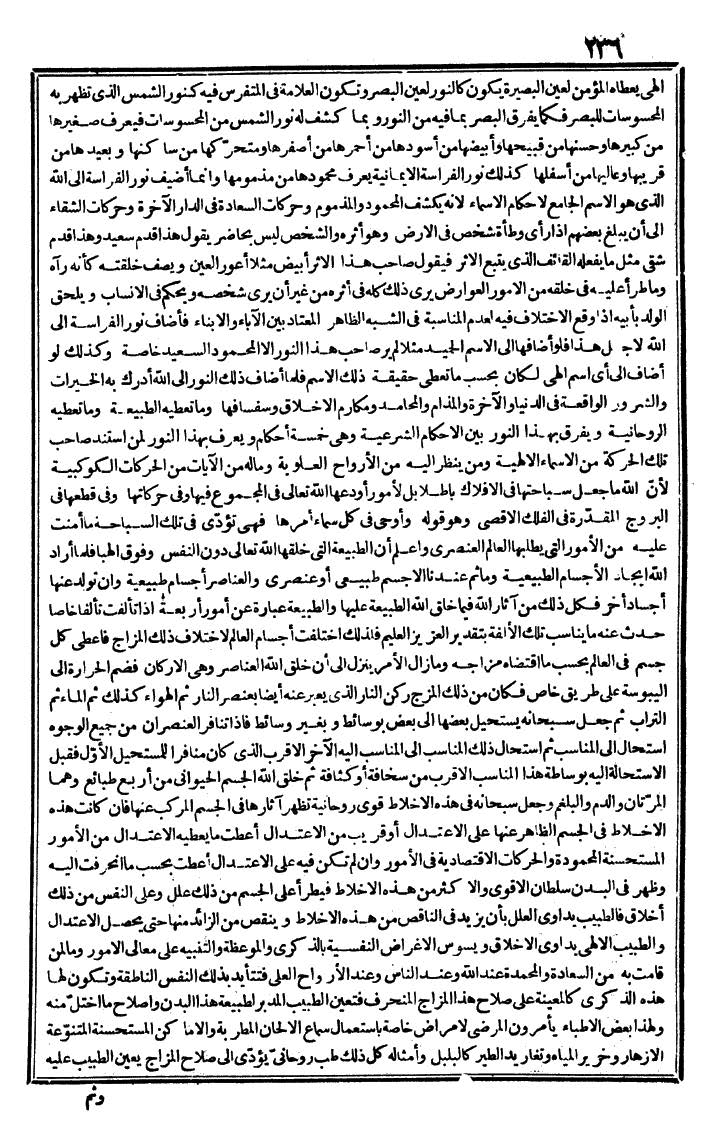 ٢٣٦
الهى يعطاه المؤمن لعين البصيرة يكون كالنور لعين البصر وتكون العلامة فى المتفرس فيه كنور الشمس الذى تظهر به
المحسوسات للبصر فكما يفرق البصر بما فيه من النور وبما كشف له نور الشمس من المحسوسات فيعرف صغيرها
من كبيرها وحسنها من قبيحها وأبيضها من أسودها من أحمرها من أصفرها ومتحركها من ساكنها وبعيدها من
قريبها وعاليها من أسفلها كذلك نور الفراسة الايمانية يعرف محمودها من مذمومها وانما أضيف نور الفراسة الى الله
الذى هو الاسم الجامع لاحكام الاسماء لانه يكشف المحمود والمذموم وحركات السعادة فى الدار الآخرة وحركات الشقاء
الى أن يبلغ بعضهم اذا رأى وطأة شخص فى الارض وهو أثره والشخص ليس بحاضر يقول هذا قدم سعيد وهذا قدم
شقى مثل ما يفعله القائف الذى يتبع الاثر فيقول صاحب هذا الاثر أبيض مثلا أعور العين ويصف خلقته كأنه رآه
وما طرأ عليه فى خلقه من الامور العوارض يرى ذلك كله فى أثره من غير أن يرى شخصه ويحكم فى الانساب ويلحق
الولد بأبيه اذا وقع الاختلاف فيه لعدم المناسبة فى الشبه الظاهر المعتاد بين الآباء والابناء فأضاف نور الفراسة الى
الله لاجل هذا فلو أضافها الى الاسم الحميد مثلا لم ير صاحب هذا النور الا المحمود السعيد خاصة وكذلك لو
أضاف الى أى اسم الهى لكان بحسب ما تعطى حقيقة ذلك الاسم فلما أضاف ذلك النور الى الله أدرك به الخيرات
والشرور الواقعة فى الدنيا والآخرة والمذام والمحامد ومكارم الاخلاق وسفسافها وما تعطيه الطبيعة وما تعطيه
الروحانية ويفرق بهذا النور بين الاحكام الشرعية وهى خمسة أحكام ويعرف بهذا النور لمن استند صاحب
تلك الحركة من الاسماء الالهية ومن ينظر اليه من الأرواح العلوية وما له من الآيات من الحركات الكوكبية
لأن الله ما جعل سباحتها فى الافلاك باطلا بل لأمور أودعها الله تعالى فى المجموع فيها وفى حركاتها وفى قطعها فى
البروج المقدرة فى الفلك الاقصى وهو قوله وأوحى فى كل سماء أمرها فهى تؤدّى فى تلك السباحة ما أمنت
عليه من الأمور التى يطلبها العالم العنصرى واعلم أن الطبيعة التى خلقها الله تعالى دون النفس وفوق الهبا فلما أراد
الله ايجاد الأجسام الطبيعية وما ثم عندنا الاجسم طبيعى أو عنصرى والعناصر أجسام طبيعية وان تولد عنها
أجساد أخر فكل ذلك من آثار الله فيما خلق الله الطبيعة عليها والطبيعة عبارة عن أمور أربعة اذا تألفت تألفا خاصا
حدث عنه ما يناسب تلك الألفة بتقدير العزيز العليم فلذلك اختلفت أجسام العالم لاختلاف ذلك المزاج فاعطى كل
جسم فى العالم بحسب ما اقتضاه مزاجه وما زال الأمر ينزل الى أن خلق الله العناصر وهى الاركان فضم الحرارة الى
اليبوسة على طريق خاص فكان من ذلك المزج ركن النار الذى يعبر عنه أيضا بعنصر النار ثم الهواء كذلك ثم الماء ثم
التراب ثم جعل سبحانه يستحيل بعضها الى بعض بوسائط وبغير وسائط فاذا تنافر العنصران من جميع الوجوه
استحال الى المناسب ثم استحال ذلك المناسب الى المناسب اليه الآخر الاقرب الذى كان منافرا للمستحيل الأوّل فقبل
الاستحالة اليه بوساطة هذا المناسب الاقرب من سخافة أو كثافة ثم خلق الله الجسم الحيوانى من أربع طبائع وهما
المرّتان والدم والبلغم وجعل سبحانه فى هذه الاخلاط قوى روحانية تظهر آثارها فى الجسم المركب عنها فان كانت هذه
الاخلاط فى الجسم الظاهر عنها على الاعتدال أو قريب من الاعتدال أعطت ما يعطيه الاعتدال من الأمور
المستحسنة المحمودة والحركات الاقتصادية فى الأمور وان لم تكن فيه على الاعتدال أعطت بحسب ما انحرفت اليه
وظهر فى البدن سلطان الاقوى والاكثر من هذه الاخلاط فيطرأ على الجسم من ذلك علل وعلى النفس من ذلك
أخلاق فالطبيب يداوى العلل بأن يزيد فى الناقص من هذه الاخلاط وينقص من الزائد منها حتى يحصل الاعتدال
والطبيب الالهى يداوى الاخلاق ويسوس الاغراض النفسية بالذكرى والموعظة والتنبيه على معالى الامور وما لمن
قامت به من السعادة والمحمدة عند الله وعند الناس وعند الأرواح العلى فتتأيد بذلك النفس الناطقة وتكون لها
هذه الذكرى كالمعينة على صلاح هذا المزاج المنحرف فتعين الطبيب المدبر لطبيعة هذا البدن واصلاح ما اختلّ منه
ولهذا بعض الاطباء يأمرون المرضى لامراض خاصة باستعمال سماع الالحان المطربة والاماكن المستحسنة المتنوّعة
الازهار وخرير المياه وتغاريد الطير كالبلبل وأمثاله كل ذلك طب روحانىّ يؤدّى الى صلاح المزاج يعين الطبيب عليه
وثم